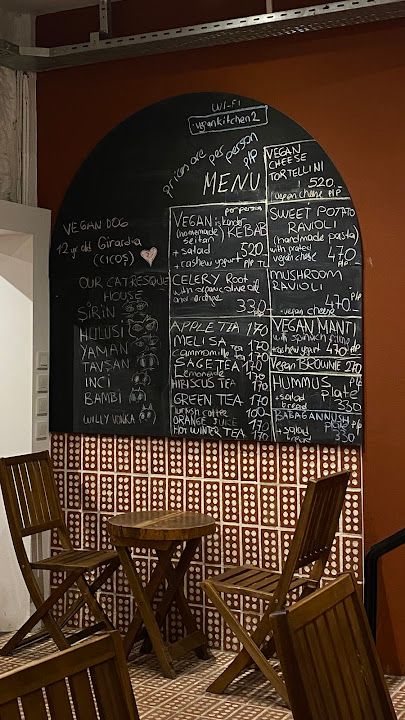 WI-FI
vegankitchen2
prices are per person
P/P
MENU
VEGAN DOG
12 yr old Girardia
(CICOŞ)
OUR CAT RESQUE
HOUSE
ŞİRİN
HULUSİ
YAMAN
TAVŞAN
INCİ
BAMBİ
WILLY WONKA
per person
VEGAN iskender
(homemade) KEBAB
seitan
+ salad 520
+ cashew yogurt P/P TL
CELERY ROOT
with organic olive oil
and orange
330
APPLE TEA 170
MELISA TEA 170
Cammomille Tea 170
SAGE TEA 170
Lemonade 170
HIBISCUS TEA 170
GREEN TEA 170
turkish coffee 100
ORANGE JUICE 170
HOT WINTER TEA 170
VEGAN
CHEESE
TORTELLINI
520
vegan cheese P/P
SWEET POTATO
RAVIOLI
(handmade pasta)
with grated 470
vegan cheese P/P
MUSHROOM
RAVIOLI
470
P/P
+ vegan cheese
VEGAN MANTI
with spinach filling
+ cashew yogurt 470 P/P
Vegan BROWNIE 270
HUMMUS plate
+ salad
bread 330
BABAGANNUSH
+ salad
bread 330